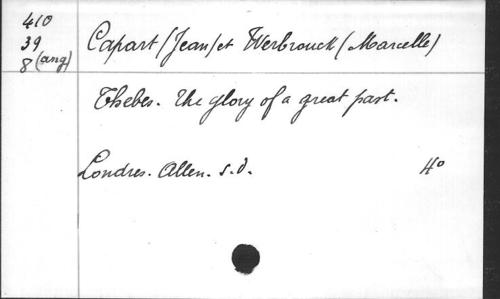 410
39
8 (ang)
Capart (Jean) et Werbrouck (Marcelle)
Thebes. The glory of a great past.
Londres. Allen. s.d. 4°